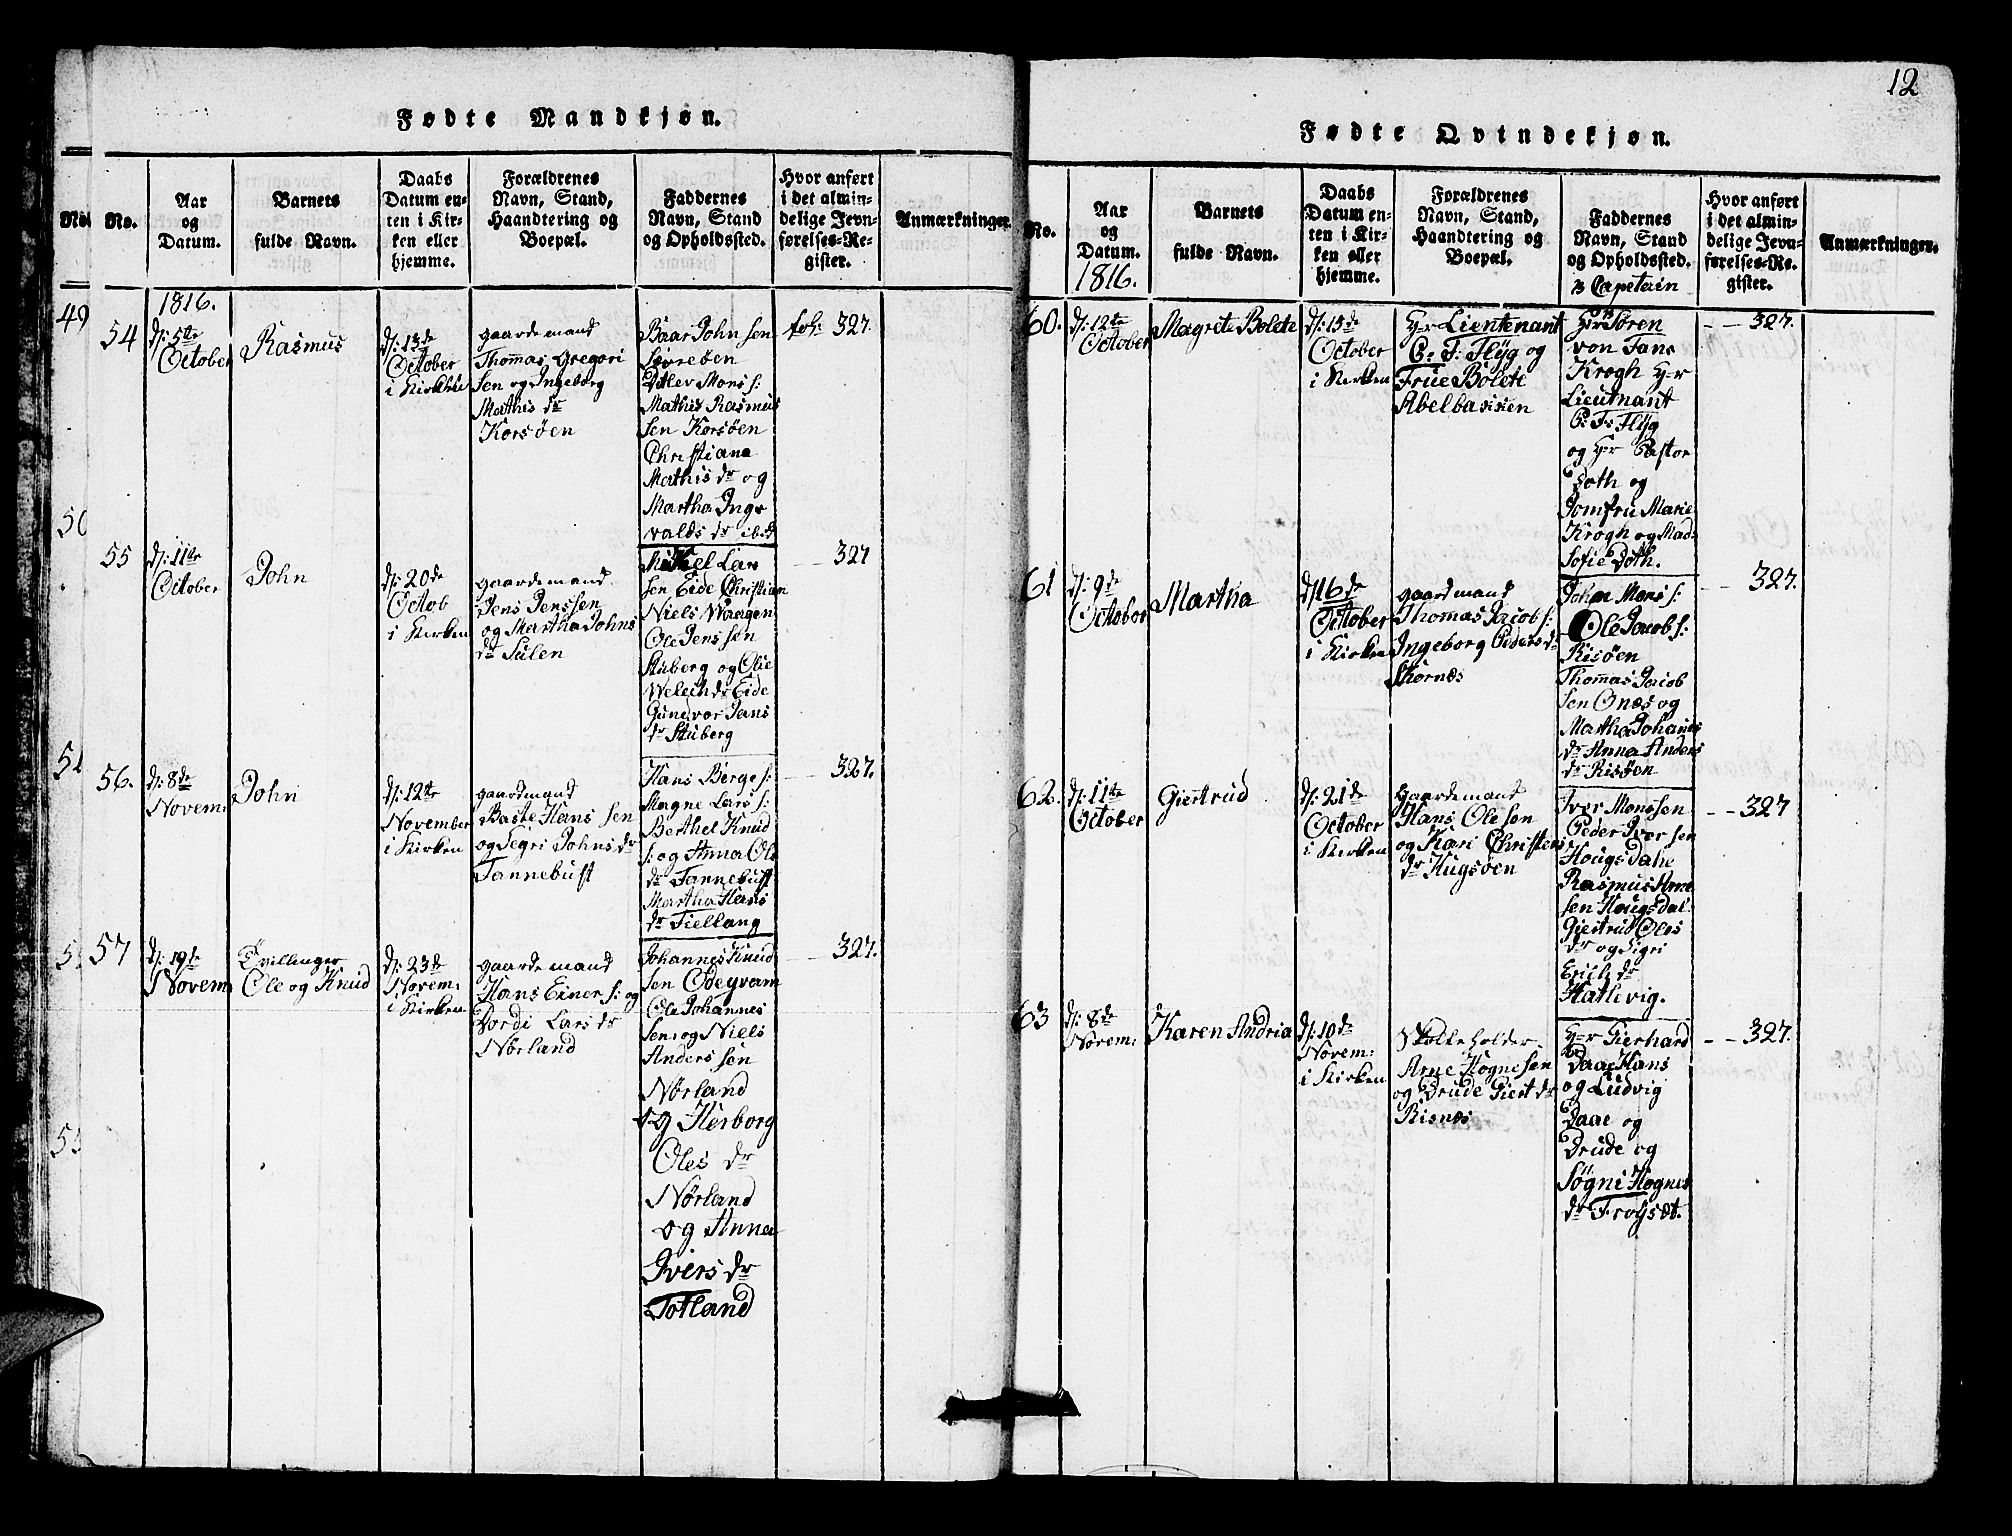 12
Fødte Mandkjøn.
No.
Aar
og
Datum.
Barnets
fulde Navn.
Daabs
Datum en-
ten i Kir-
ken eller
hjemme.
Forældrenes
Navn, Stand,
Haandtering og
Boepæl.
Faddernes
Navn, Stand
og Opholdssted.
Hvor anført
i det almin-
delige Jevn-
førelses-Re-
gister.
Anmærkninger.
1816.
54
d: 5te
October
Rasmus
d: 13de
October
i Kirken
gaardemand
Thomas Gregori
sen og Ingeborg
Mathis dr
Korsøen
Baar John sen
Ditlev Mons s:
Mathis Rasmus
sen Korsøen
Christiane
Mathis dr og
Martha Ing
valds dr ibd
fol: 327.
55
d: 11te
October
John
d: 20de
Octob
i Kirken
gaardemand
Jens Jenssen
og Martha Johns
dr Sulen
Mikkel Lar
sen Eide Christian
Niels Waagen
Ole Jenssen
Stuberg og Olie
Eide
Gunevor Jans
dr Stuberg
327
56.
d: 8de
Novem:
John
d: 12te
November
i Kirken
gaardmand
Baste Hans sen
og Segri Johns dr
Tannebust
Hans Berge s:
Magne Lars s:
Berthel Knud
s: og Anna Ols
dr Tannebust
Martha Hans
dr Fiellang
327.
57
d: 19te
Novem
Tvillinger
Ole og Knud
d: 23de
Novem:
i Kirken
gaardemand
Hans Einer s: og
Dordi Lars dr
Nørland
Johannes Knud
sen Odeyvam
Ole Johannes
sen og Niels
Anders sen
Nørland
og Herborg
Oles dr
Nørland
og Anna
Ivers dr
Totland
327.
Fødte Qvindekjøn.
No.
Aar
og
Datum.
1816.
Barnets
fulde Navn.
Daabs
Datum en-
ten i Kir-
ken eller
hjemme.
Forældrenes
Navn, Stand,
Haandtering og
Boepæl.
Faddernes
Navn, Stand
og Opholdssted.
Hvor anført
i det almin-
delige Jevn-
førelses-Re-
gister.
Anmærkninger.
60.
d: 12te
October
Magrete Bolete
d: 13de
October
i Kirken
Hr Lieutenant
C: F: Flyg og
Frue Bolete
Abelbassisen
Capetain
Hr Søren
von Jans
Krogh Hr
Lieutnant
C: F: Flyg
og Hr Pastor
Doth og
Jomfru Marie
Krogh og Mad:
Sofie Doth.
327.
61
d: 9de
October
Martha
d: 16de
October
i Kirken
gaardmand
Thomas Jacob s:
Ingeborg Peders dr
Skornæs
Johan Mons s:
Ole Jacob s:
Risøen
Thomas Jacob
sen Onæs og
Martha Johanes
dr Anna Anders
dr Risøen
327.
62.
d: 11te
October
Giertrud
d: 21de
October
i Kirken
gaardemand
Hans Olesen
og Kari Christen
dr Hugsøen
Iver Monssen
Peder Iver sen
Hougsdahe
Rasmus Arne
sen Hougsdal
Giertrud Oles
dr og Sigri
Erichs dr
Hatlevig.
327
63
d: 8de
Novem:
Karen Andria
d: 10de
Novem:
i Kirken
Skolleholder
Arne Høgnesen
og Drude Giert dr
Risnæs
Hr Gierhard
Daae Hans
og Ludvig
Daae og
Drude og
Søgni Høgnes
dr Frøysæt.
327.